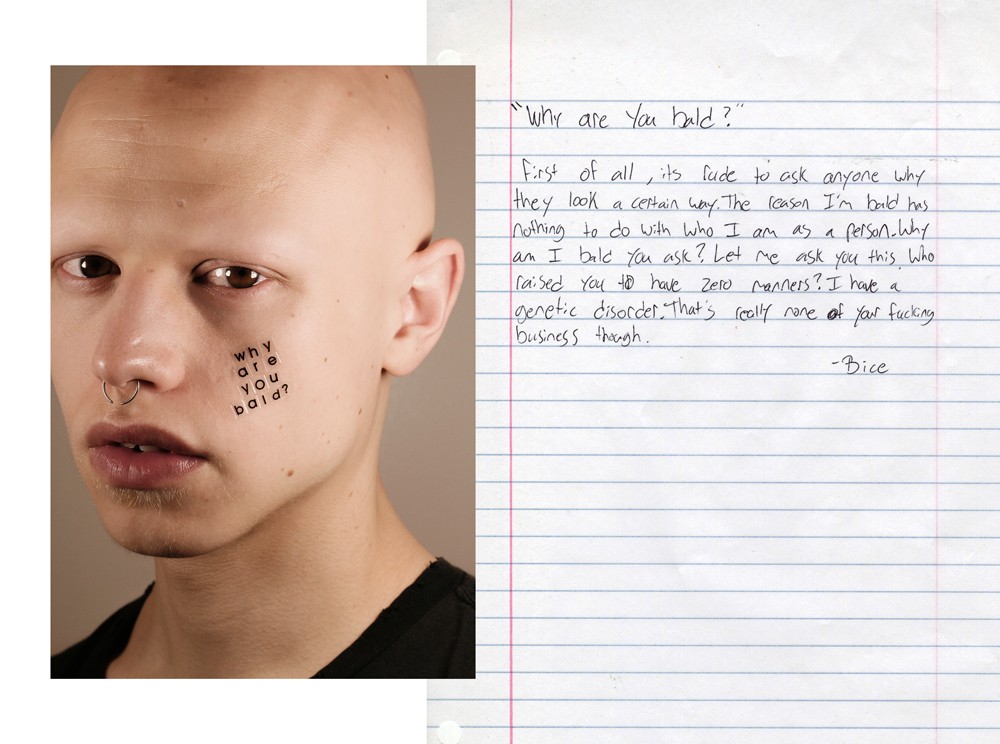 why
are
you
bald?
"Why are you bald?"
First of all, its rude to ask anyone why
they look a certain way. The reason I'm bald has
nothing to do with who I am as a person. Why
am I bald you ask? Let me ask you this. Who
raised you to have zero manners? I have a
genetic disorder. That's really none of your fucking
business though.
-Bice